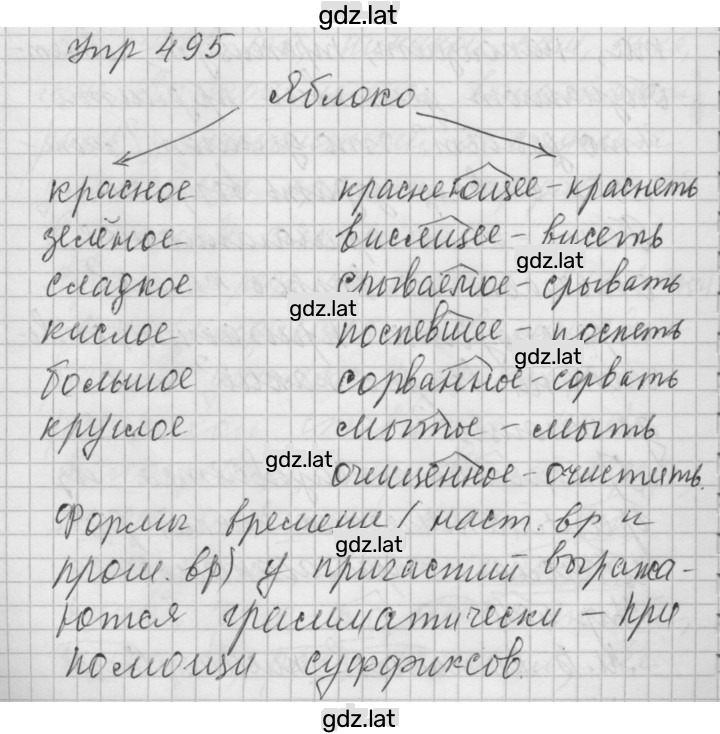 gdz.lat
Упр 495
Яблоко
красное краснеющее - краснеть
зелёное висящее - висеть
gdz.lat
сладкое срываемое - срывать
gdz.lat
кислое поспевшее - поспеть
gdz.lat
большое сорванное - сорвать
круглое мытое - мыть
gdz.lat
очищенное - очистить.
Формы времени (наст. вр и
gdz.lat
прош. вр) у причастий выража-
ются грамматически - при
помощи суффиксов.
gdz.lat